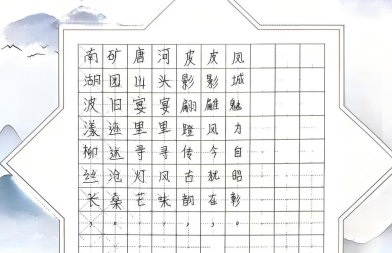 南湖波漾柳丝长，
矿园旧迹迷沧桑。
唐山宴里寻灯芒，
河头宴里寻风味。
皮影翩蹬传古韵，
皮影雕风今犹在，
凤城魅力自昭彰。